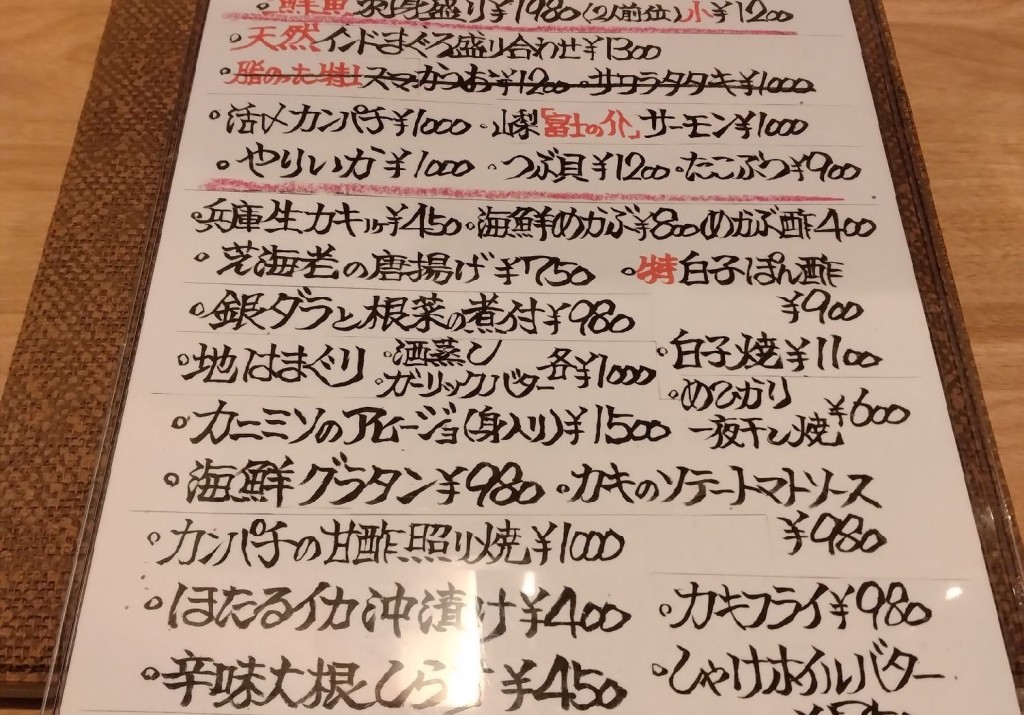 ・鮮魚刺身盛り¥1980(2人前位)小¥1200
・天然インドまぐろ盛り合わせ¥1300
・脂のった特上スマかつお¥1200・サワラタタキ¥1000
・活〆カンパチ¥1000・山梨「富士の介」サーモン¥1000
・やりいか¥1000・つぶ貝¥1200・たこぶつ¥900
兵庫生カキ¥450・海鮮めかぶ¥800めかぶ酢400
・芝海老の唐揚げ¥750 ・特白子ぽん酢
¥900
・銀ダラと根菜の煮付¥980
・地はまぐり ・酒蒸し ・ガーリックバター 各¥1000
・白子焼¥1100
・めひかり
一夜干し焼 ¥600
・カニミソのアヒージョ(身入り)¥1500
・海鮮グラタン¥980 ・カキのソテートマトソース
¥980
・カンパチの甘酢照り焼¥1000
・ほたるイカ沖漬け¥400 ・カキフライ¥980
・辛味大根しらす¥450 ・しゃけホイルバター